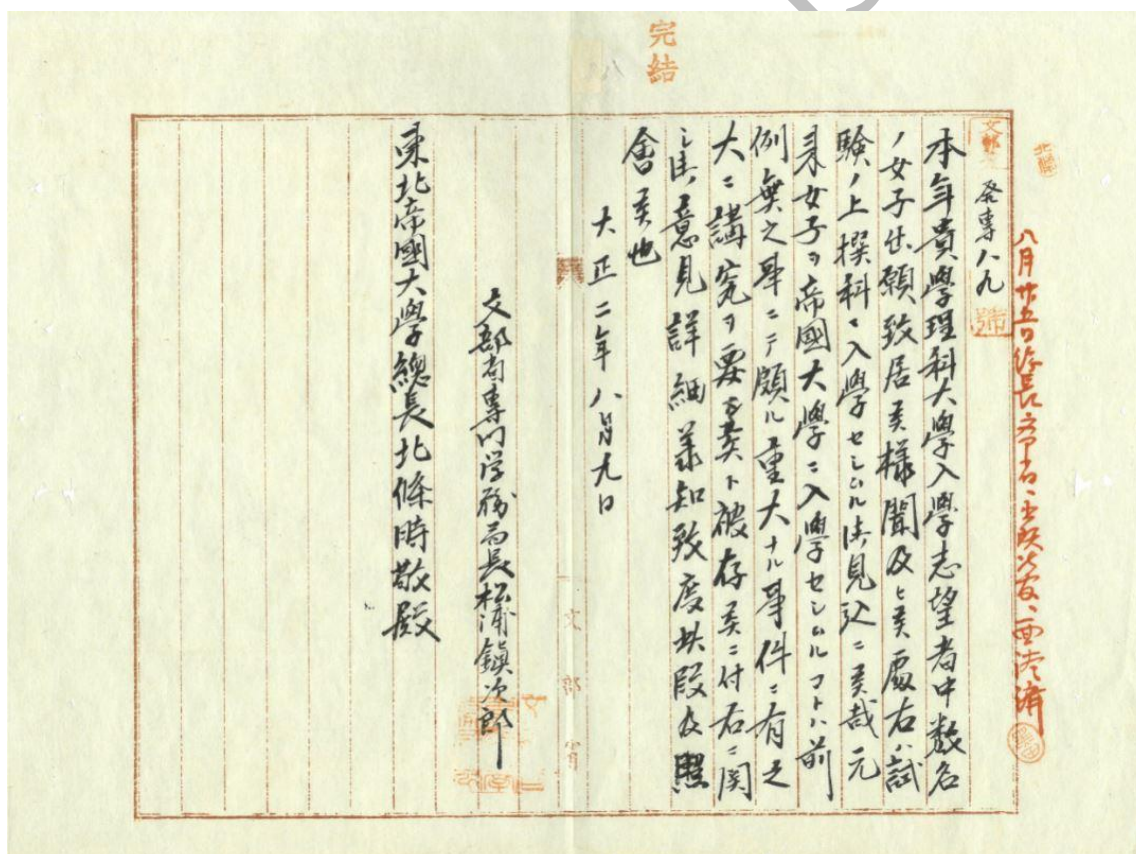 完結
北
文部省
発専八九號
本年貴學理科大學入學志望者中数名
ノ女子出願致居候様聞及ヒ候處右ハ試
験ノ上撰科ニ入學セシムル御見込ニ候哉元
来女子ヲ帝國大學ニ入學セシムルコトハ前
例無之事ニテ頗ル重大ナル事件ニ有之
大ニ講究ヲ要シ候ト被存候ニ付右ニ関
シ御意見詳細承知致度此段及照
會候也
大正二年八月九日
文部省専門学務局長松浦鎮次郎
東北帝國大學總長北條時敬殿
文部省
八月廿五日